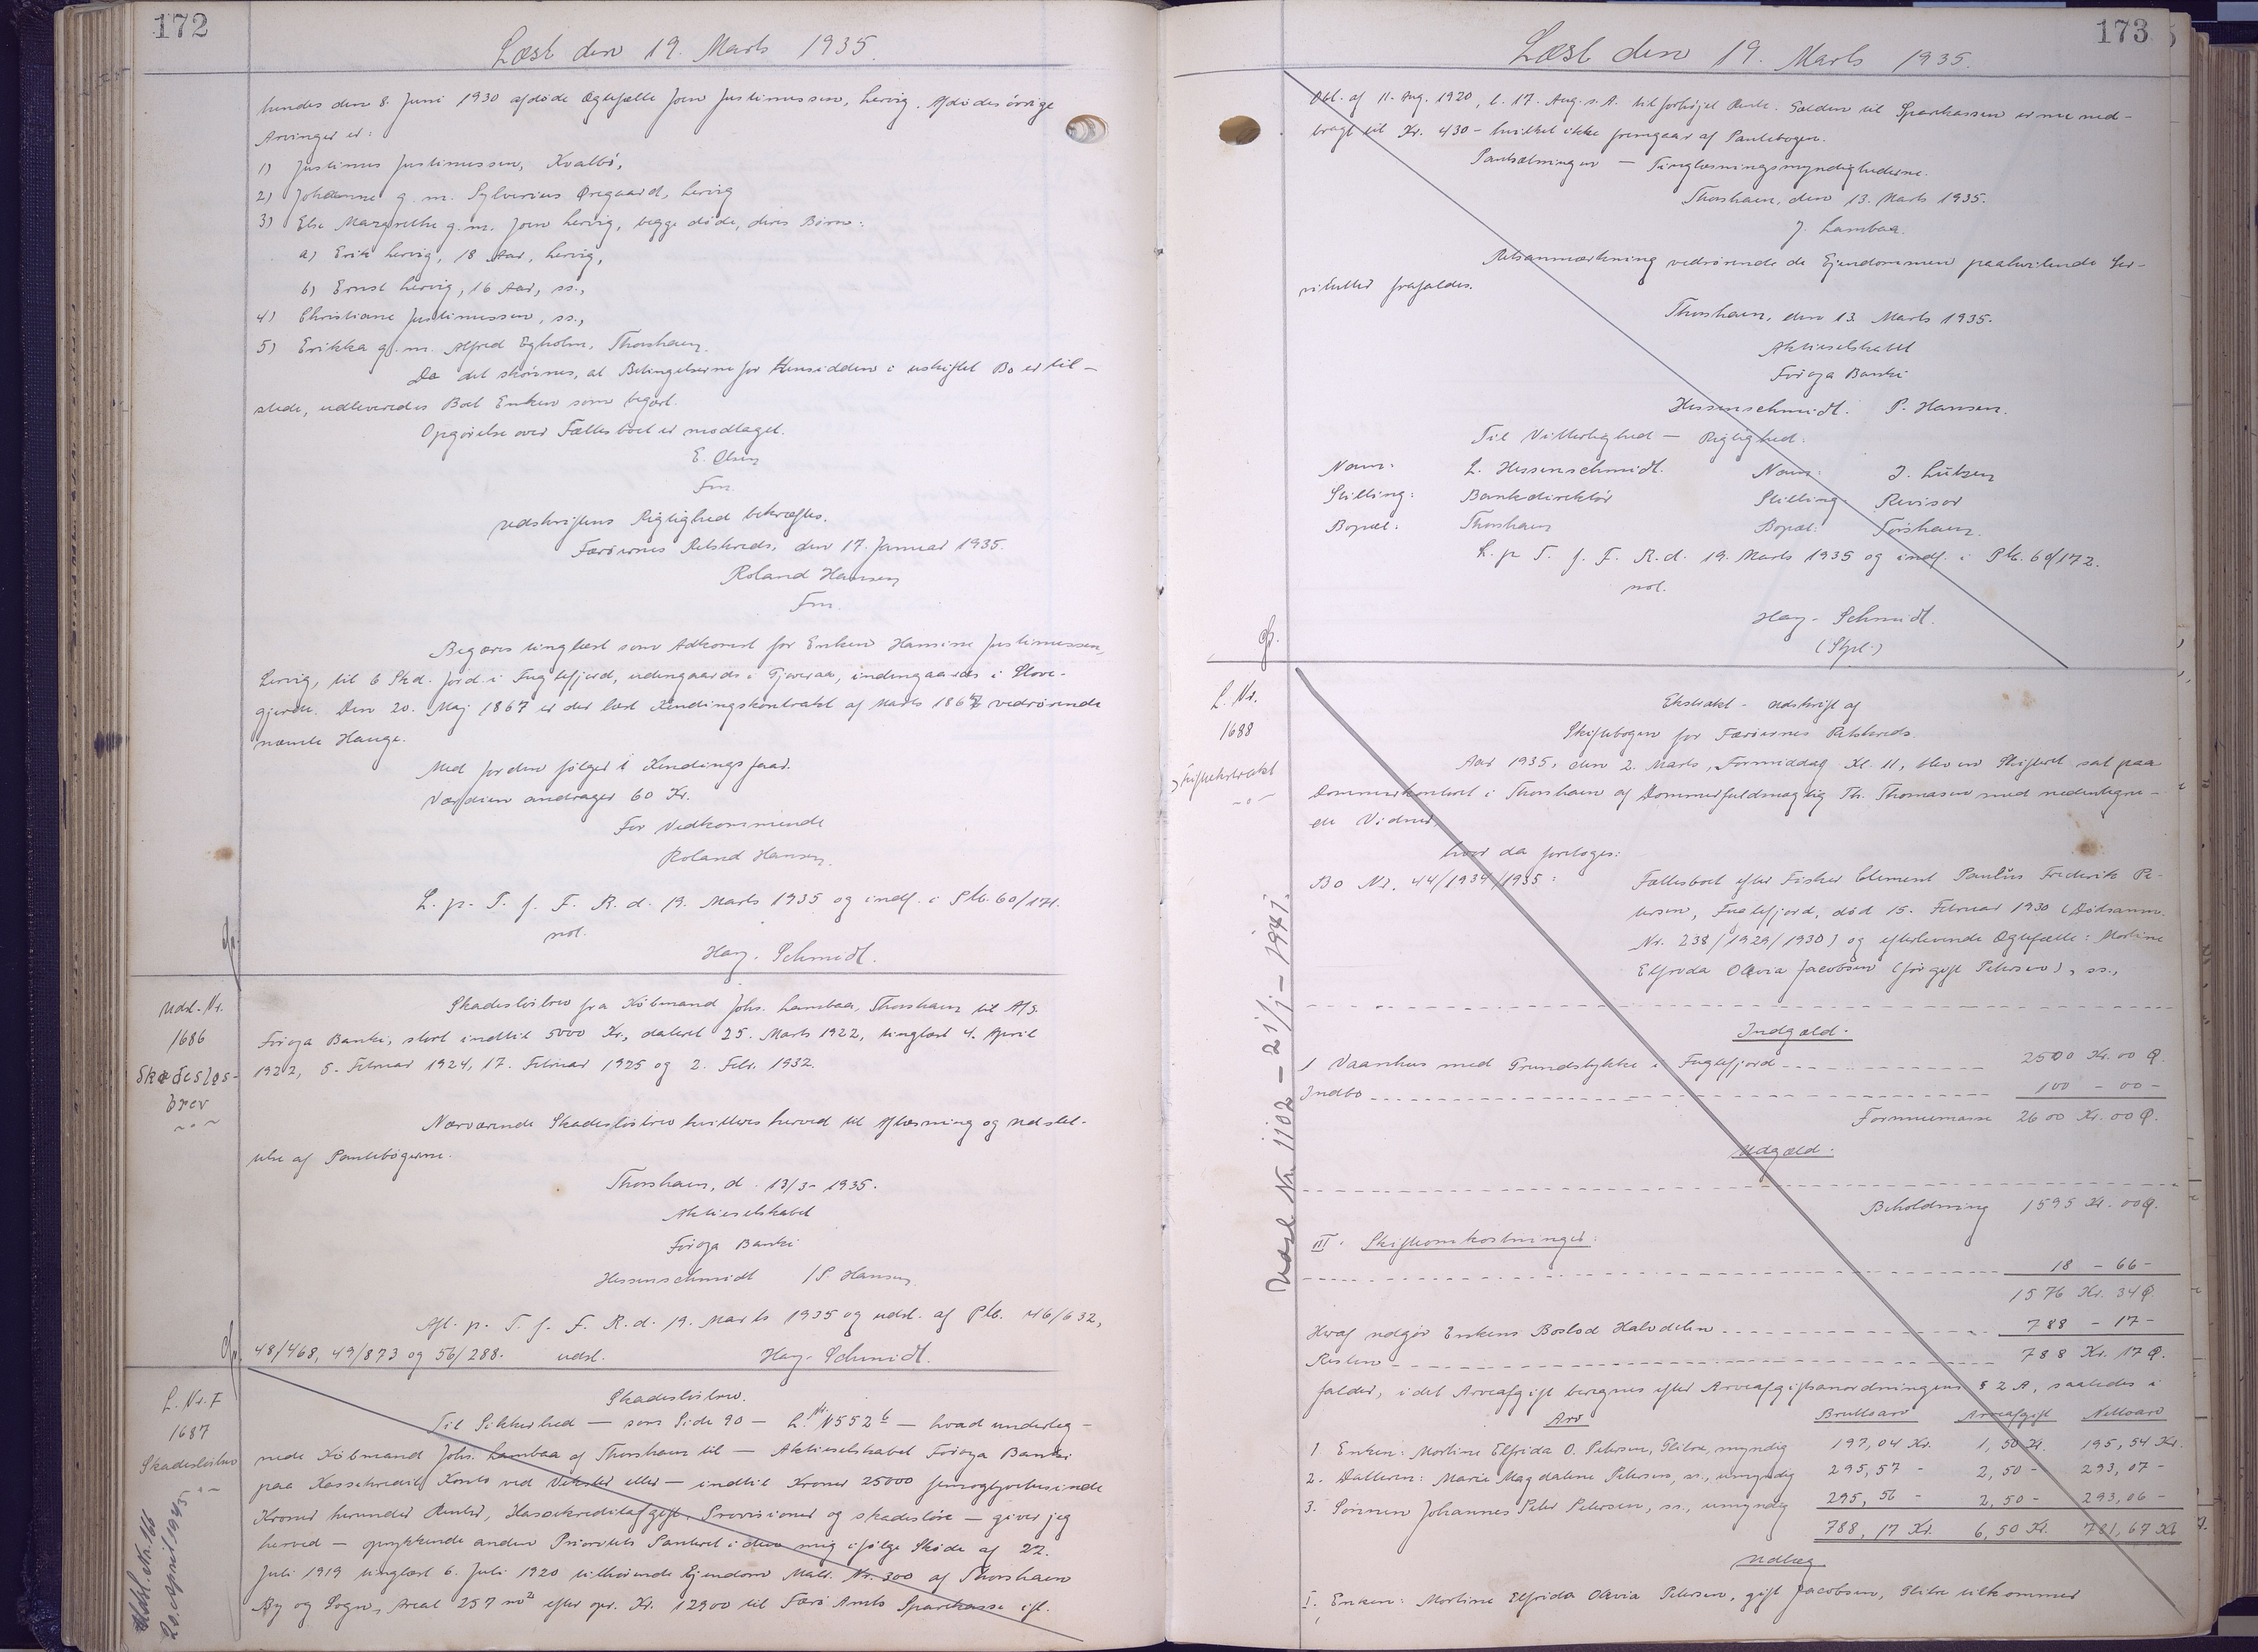 172
Læst den 19. Marts 1935.
hendes den 8. Juni 1930 afdøde Ægtefælle Joen Justinussen, Lervig. Afdødes øvrige
Arvinger er:
1) Justinus Justinussen, Kvalbø,
2) Johanne g. m. Sylverius Øregaard, Lervig
3) Else Margrethe g. m. Joen Lervig, begge døde, deres Børn:
a) Erik Lervig, 18 Aar, Lervig,
b) Ernst Lervig, 16 Aar, ss.,
4) Christiane Justinussen, ss.,
5) Erikka g. m. Alfred Egholm, Thorshavn.
Da det skønnes, at Betingelserne for Hensidden i uskiftet Bo er til-
stede, udleveredes Boet Enken som begært.
Opgørelse over Fællesboet er modtaget.
E. Olsen
Fm.
Udskriftens Rigtighed bekræftes.
Færøernes Retskreds, den 17. Januar 1935.
Roland Hansen
Fm.
Begæres tinglæst som Adkomst for Enken Hansine Justinussen,
Lervig, til 6 Skd. Jord i Fuglefjord, udengaards i Gjøveraa, indengaards i Stove-
gjerde. Den 20. Maj 1867 er der læst Kendingskontrakt af Marts 1867 vedrørende
nævnte Hauge.
Med Jorden følger 1 Kendingsfaar.
Værdien andrager 60 Kr.
For Vedkommende
Roland Hansen.
L. p. T. f. F. R. d. 19. Marts 1935 og indf. i Ptb. 60/171.
not.
Hay-Schmidt.
Udsl.-Nr.
1686
Skadesløs-
brev
Skadesløsbrev fra Købmand Johs. Lambaa, Thorshavn til A/S.
Føroya Banki, stort indtil 5000 Kr., dateret 25. Marts 1922, tinglæst 4. April
1922, 5. Februar 1924, 17. Februar 1925 og 2. Febr. 1932.
Nærværende Skadesløsbrev kvitteres herved til Aflæsning og Udslet-
telse af Pantebøgerne.
Thorshavn, d. 13/3-1935.
Aktieselskabet
Føroya Banki
Hessenschmidt /P. Hansen
Afl. p. T. f. F. R. d. 19. Marts 1935 og udsl. af Ptb. 46/632,
48/468, 49/873 og 56/288. udsl. Hay-Schmidt.
L. Nr. F
1687
Skadesløsbrev
Udsl. Nr. 166
20. April 1945
Skadesløsbrev.
Til Sikkerhed — som Side 90 — L. Nr. 1552 b — hvad underteg-
nede Købmand Johs. Lambaa af Thorshavn til — Aktieselskabet Føroya Banki
paa Kassekredit, Konto ved Veksler eller — indtil Kroner 25000 femogtyvetusinde
Kroner herunder Renter, Kassekreditafgift, Provisioner og skadesløse — giver jeg
herved — oprykkende anden Prioritets Panteret i den mig ifølge Skøde af 22.
Juli 1919 tinglæst 6. Juli 1920 tilhørende Ejendom Matr. Nr. 300 af Thorshavn
By og Sogn, Areal 257 m² efter opr. Kr. 12900 til Færø Amts Sparekasse ifl.
173
Læst den 19. Marts 1935.
Obl. af 11. Aug. 1920, l. 17. Aug. s. A. til forhøjet Rente. Gælden til Sparekassen er nu ned-
bragt til Kr. 430- hvilket ikke fremgaar af Pantebogen.
Pantsætningen — Tinglæsningsmyndighederne.
Thorshavn, den 13. Marts 1935.
J. Lambaa.
Retsanmærkning vedrørende de Ejendommen paahvilende Ser-
vitutter frafaldes.
Thorshavn, den 13. Marts 1935.
Aktieselskabet
Føroya Banki
Hessenschmidt. P. Hansen.
Til Vitterlighed — Rigtighed:
Navn: L. Hessenschmidt. Navn: J. Lützen
Stilling: Bankdirektør Stilling Revisor
Bopæl: Thorshavn Bopæl: Tórshavn.
L. p T. f. F. R. d. 19. Marts 1935 og indf. i Ptb. 60/172.
not.
Hay-Schmidt.
(Stpl.)
L. Nr.
1688
Skifteekstrakt
Udsl. Nr. 1102 - 21/1 - 1941.
Ekstrakt-Udskrift af
Skiftebogen for Færøernes Retskreds.
Aar 1935, den 2. Marts, Formiddag Kl. 11, blev en Skifteret sat paa
Dommerkontoret i Thorshavn af Dommerfuldmægtig Th. Thomasen med nedentegne-
de Vidner,
hvor da foretoges:
Bo Nr. 44/1934/1935: Fællesboet efter Fisker Clement Paulus Frederik Pe-
tersen, Fuglefjord, død 15. Februar 1930 (Dødsanm.
Nr. 238/1929/1930) og efterlevende Ægtefælle: Mortine
Elfrida Olevia Jacobsen (før gift Petersen), ss.,
Indgæld.
1 Vaanhus med Grundstykke i Fuglefjord 2500 Kr. 00 Ø.
Indbo 100 - 00 -
Formuemasse 2600 Kr. 00 Ø.
Udgæld.
Beholdning 1595 Kr. 00 Ø.
III. Skifteomkostninger:
18 - 66 -
1576 Kr. 34 Ø.
Heraf udgør Enkens Boslod Halvdelen 788 - 17 -
Resten 788 Kr. 17 Ø.
falder, idet Arveafgift beregnes efter Arveafgiftsanordningens § 2 A, saaledes i
Arv Bruttoarv Arveafgift Nettoarv
1 Enken: Mortine Elfrida O. Petersen, Glibre, myndig 197,04 Kr. 1,50 Kr. 195,54 Kr.
2. Datteren: Marie Magdalene Petersen, ss., umyndig 295,57 - 2,50 - 293,07 -
3. Sønnen Johannes Peter Petersen, ss., umyndig 295,56 - 2,50 - 293,06 -
788,17 Kr. 6,50 Kr. 781,67 Kr.
Udlæg
I. Enken: Mortine Elfrida Olevia Petersen, gift Jacobsen, Glibre tilkommer